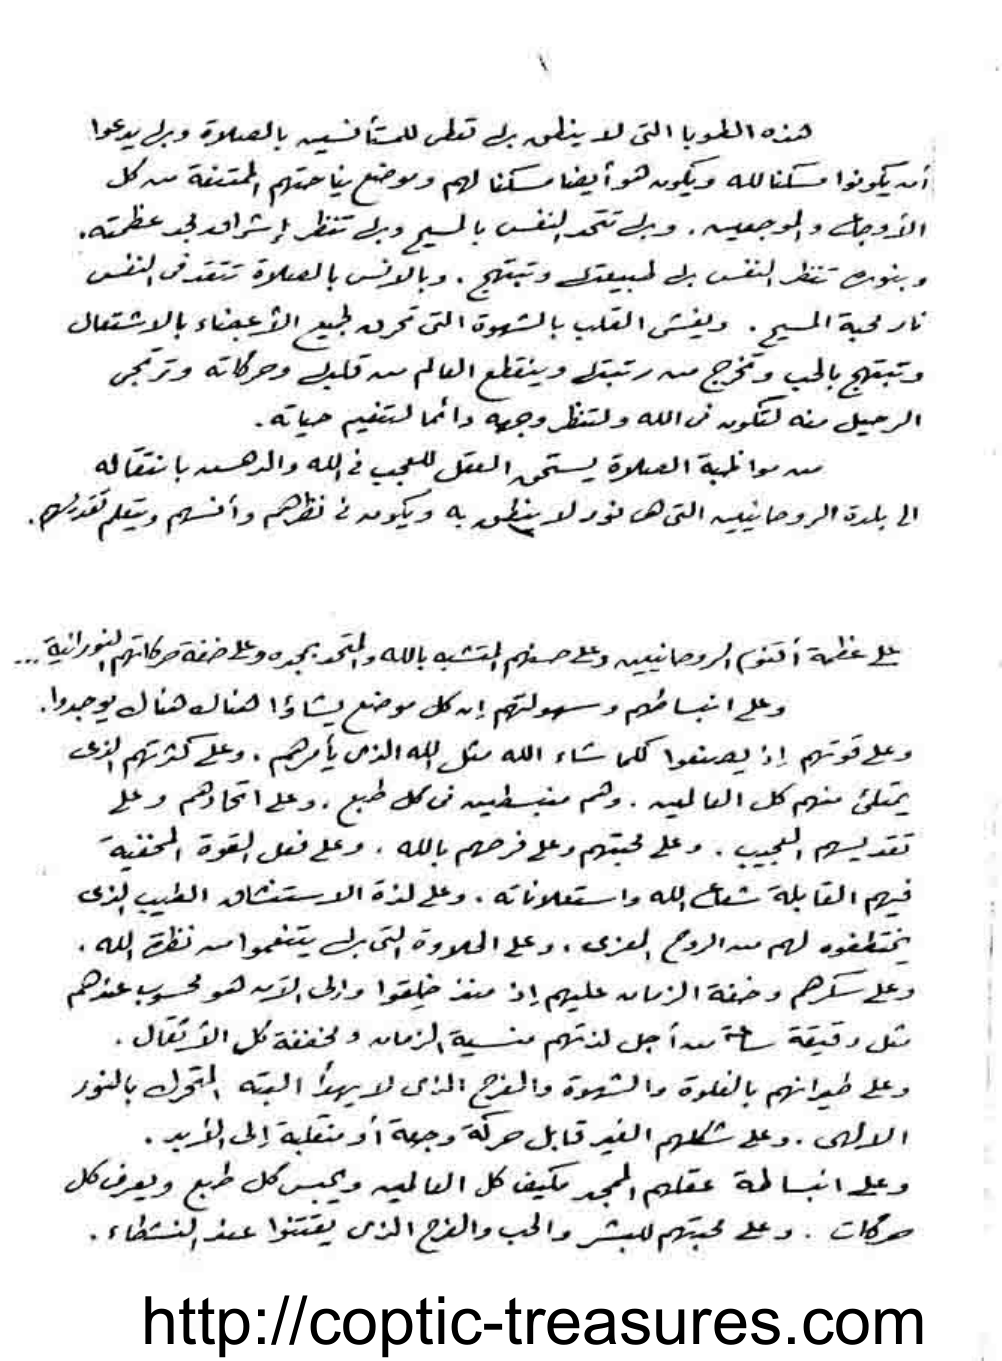 ١
هذه الطوبا التى لا ينطق بها تعطى للمستأنسين بالصلاة وبها يدعوا
أن يكونوا مسكنا لله ويكون هو أيضا مسكنا لهم وموضع نياحتهم المتنقة من كل
الأوجاع والموجعين . وبها تتحد النفس بالمسيح وبها تنظر إشراق مجد عظمته .
وبنوره تنظر النفس بها طبيعتها وتبتهج . وبالانس بالصلاة تتقد فى النفس
نار محبة المسيح . ويغشى القلب بالشهوة التى تحرق جميع الأعضاء بالاشتعال
وتبتهج بالحب وتخرج من رتبتها وينقطع العالم من قلبها وحركاته وترتجى
الرحيل منه لتكون فى الله ولتنظر وجهه دائما لتنعيم حياته .
من مواظبة الصلاة يستحق العقل للعجب فى الله والدهش بانتقاله
الى بلدة الروحانيين التى هى نور لا ينطق به ويكون فى نظرهم وأنسهم ويتعلم تقديسهم .
على عظمة أقنوم الروحانيين وعلى حسنهم المتشبه بالله والمتحد بمجده وعلى خفة حركاتهم النورانية ...
وعلى انبساطهم وسهولتهم إن كل موضع يشاؤا هناك هناك يوجدوا .
وعلى قوتهم إذ يصنعوا كلما شاء الله مثل الله الذى يأمرهم . وعلى كثرتهم الذى
يمتلئ منهم كل العالمين . وهم منبسطين فى كل طبع . وعلى اتحادهم وعلى
تقديسهم العجيب . وعلى محبتهم وعلى فرحهم بالله . وعلى فعل القوة المخفية
فيهم القابلة شعاع الله واستعلاناته . وعلى لذة الاستنشاق الطيب الذى
يختطفوه لهم من الروح المعزى . وعلى الحلاوة التى بها يتنعموا من نظرة الله .
وعلى سكرهم وخفة الزمان عليهم إذ منذ خلقوا وإلى الآن هو محسوب عندهم
مثل دقيقة ساعة من أجل لذتهم منسية الزمان ومخففة كل الأثقال .
وعلى طيرانهم بالغلوة والشهوة والفرح الذى لا يهدأ البته المتحرك بالنور
الالهى . وعلى شكلهم الغير قابل حركة وجهة أو متقلبة إلى الأبد .
وعلى انبساطة عقلهم الممجد مكيف كل العالمين ويحبس كل طبع ويعرف كل
حركات . وعلى محبتهم للبشر والحب والفرح الذى يقتنوا عند النشطاء .
http://coptic-treasures.com